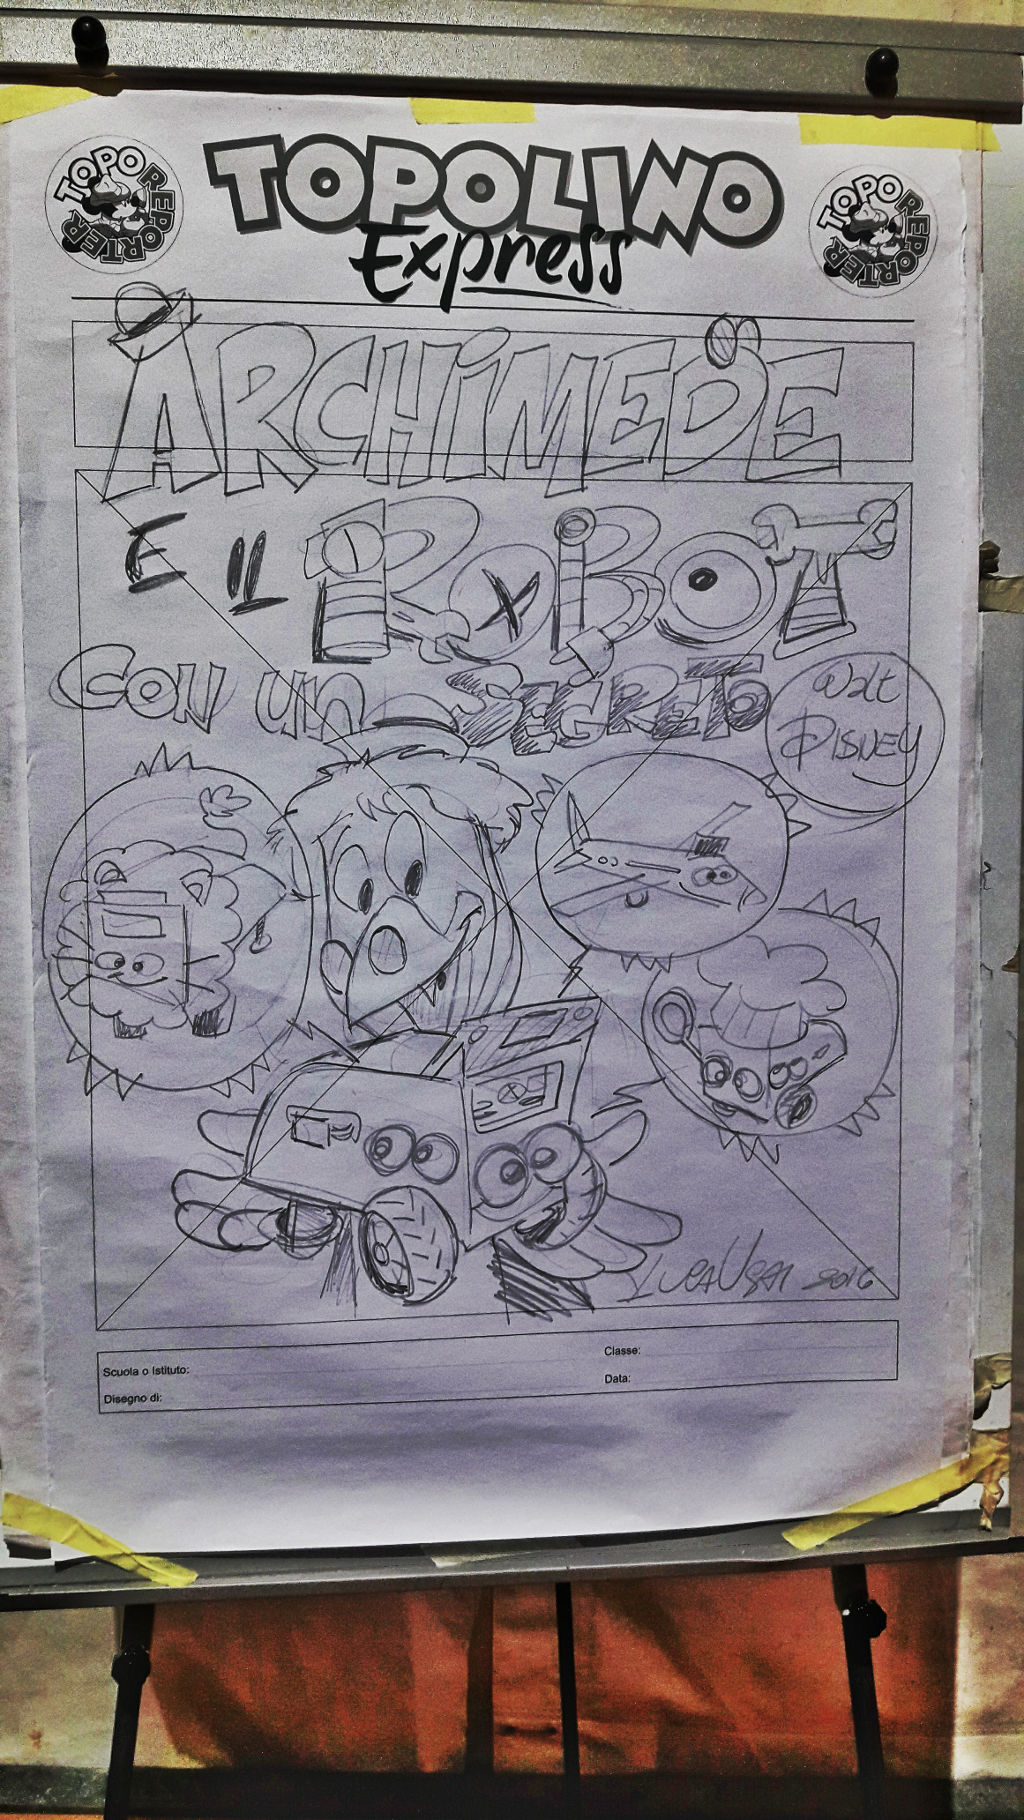 TOPOREPORTER
TOPOLINO
Express
TOPOREPORTER
ARCHIMEDE
E IL ROBOT
CON UN SEGRETO
Walt
DISNEY
LUCA USAI 2016
Scuola o Istituto:
Classe:
Disegno di:
Data: